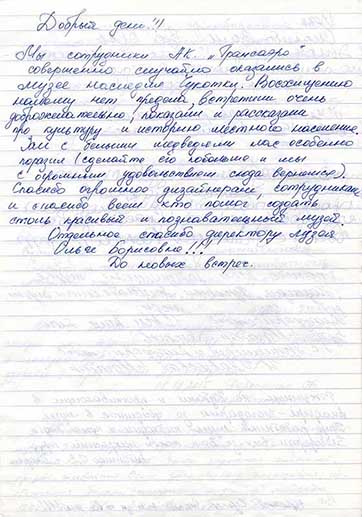 Добрый день!!!
Мы сотрудники АК „Трансаэро"
совершенно случайно оказались в
музее наследие Чукотки. Восхищению
нашему нет предела, встретили очень
доброжелательно, показали и рассказали
про культуру и историю местного населения.
Зал с белыми медведями нас особенно
поразил (сделайте его побольше и мы
с огромным удовольствием сюда вернемся).
Спасибо огромное дизайнерам, сотрудникам
и спасибо всем кто помог создать
столь красивый и познавательный музей.
Отдельное спасибо директору музея
Ольге Борисовне!!!
До новых встреч.